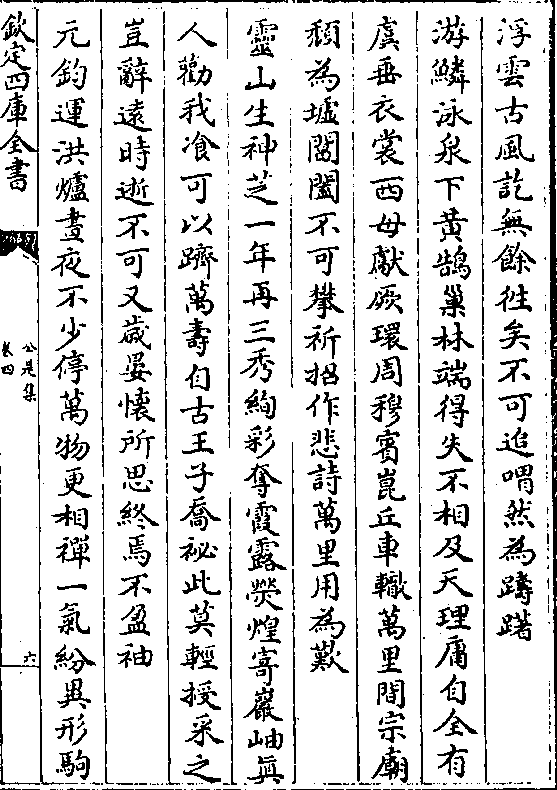 浮雲古風訖無餘徃矣不可追喟然為躊躇
游鱗泳泉下黄鵠巢林端得失不相及天理庸自全有
虞垂衣裳西母獻厥環周穆賔崑丘車轍萬里間宗廟
頽為墟閶闔不可攀祈招作悲詩萬里用為歎
靈山生神芝一年再三秀絢彩奪霞露熒煌寄巖岫眞
人勸我飡可以躋萬壽自古王子喬祕此莫輕授采之
豈辭逺時逝不可又歳晏懐所思終焉不盈袖
元鈞運洪爐晝夜不少停萬物更相禪一氣紛異形駒
欽定四庫全書
公是集
卷四
六